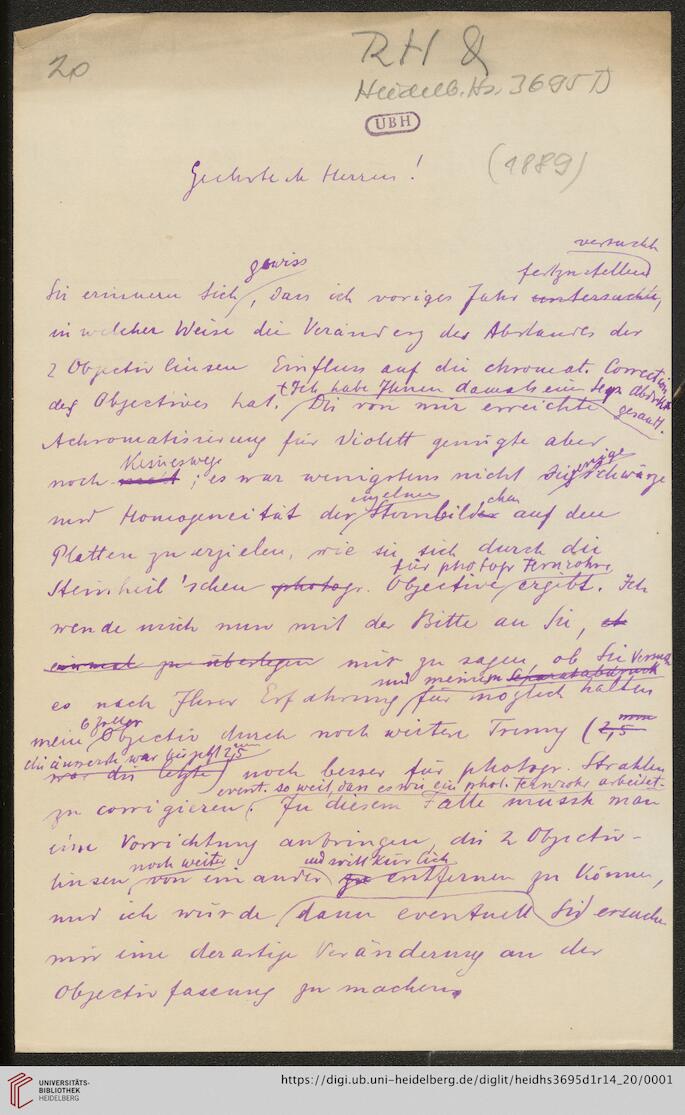 20
RH 8
Heidelb. Hs. 3695 D
UBH
(1889)
Geehrteste Herren!
gewiss
versucht
festzustellen
Sie erinnern Sich, dass ich voriges Jahr untersuchte,
in welcher Weise die Veränderg des Abstandes der
2 Objectivlinsen Einfluss auf die chromat. Correction
† Ich habe Ihnen damals ein Sep. Abdruck gesandt.
des Objectives hat. Die von mir erreichte
Achromatisierung für Violett genügte aber
Keineswegs
noch nicht; es war wenigstens nicht diejenige Schwärze
einzelnen
und Homogeneität der Sternbildchen auf den
Platten zu erzielen, wie sie sich durch die
für photogr Fernrohre
Steinheil'schen photogr. Objective ergibt. Ich
wende mich nun mit der Bitte an Sie, 
einmal zu überlegen mir zu sagen, ob Sie
und meinem Separatabdruck
es nach Ihrer Erfahrung für möglich halten
6 zöllgr
mein Objectiv durch noch weitere Trenng (2,5 mm
die äusserste war bis jetzt 2,5 mm
war die letzte) noch besser für photogr. Strahlen
event. so weit, dass es wie ein phot. Fernrohr arbeitet.
zu corrigieren. In diesem Falle müsste man
eine Vorrichtung anbringen, die 2 Objectiv-
noch weiter
und willkürlich
linsen von einander zu entfernen zu können,
und ich würde dann eventuell Sie ersuchen
mir eine derartige Veränderung an der
Objectivfassung zu machen.
UNIVERSITÄTS-
BIBLIOTHEK
HEIDELBERG
https://digi.ub.uni-heidelberg.de/diglit/heidhs3695d1r14_20/0001